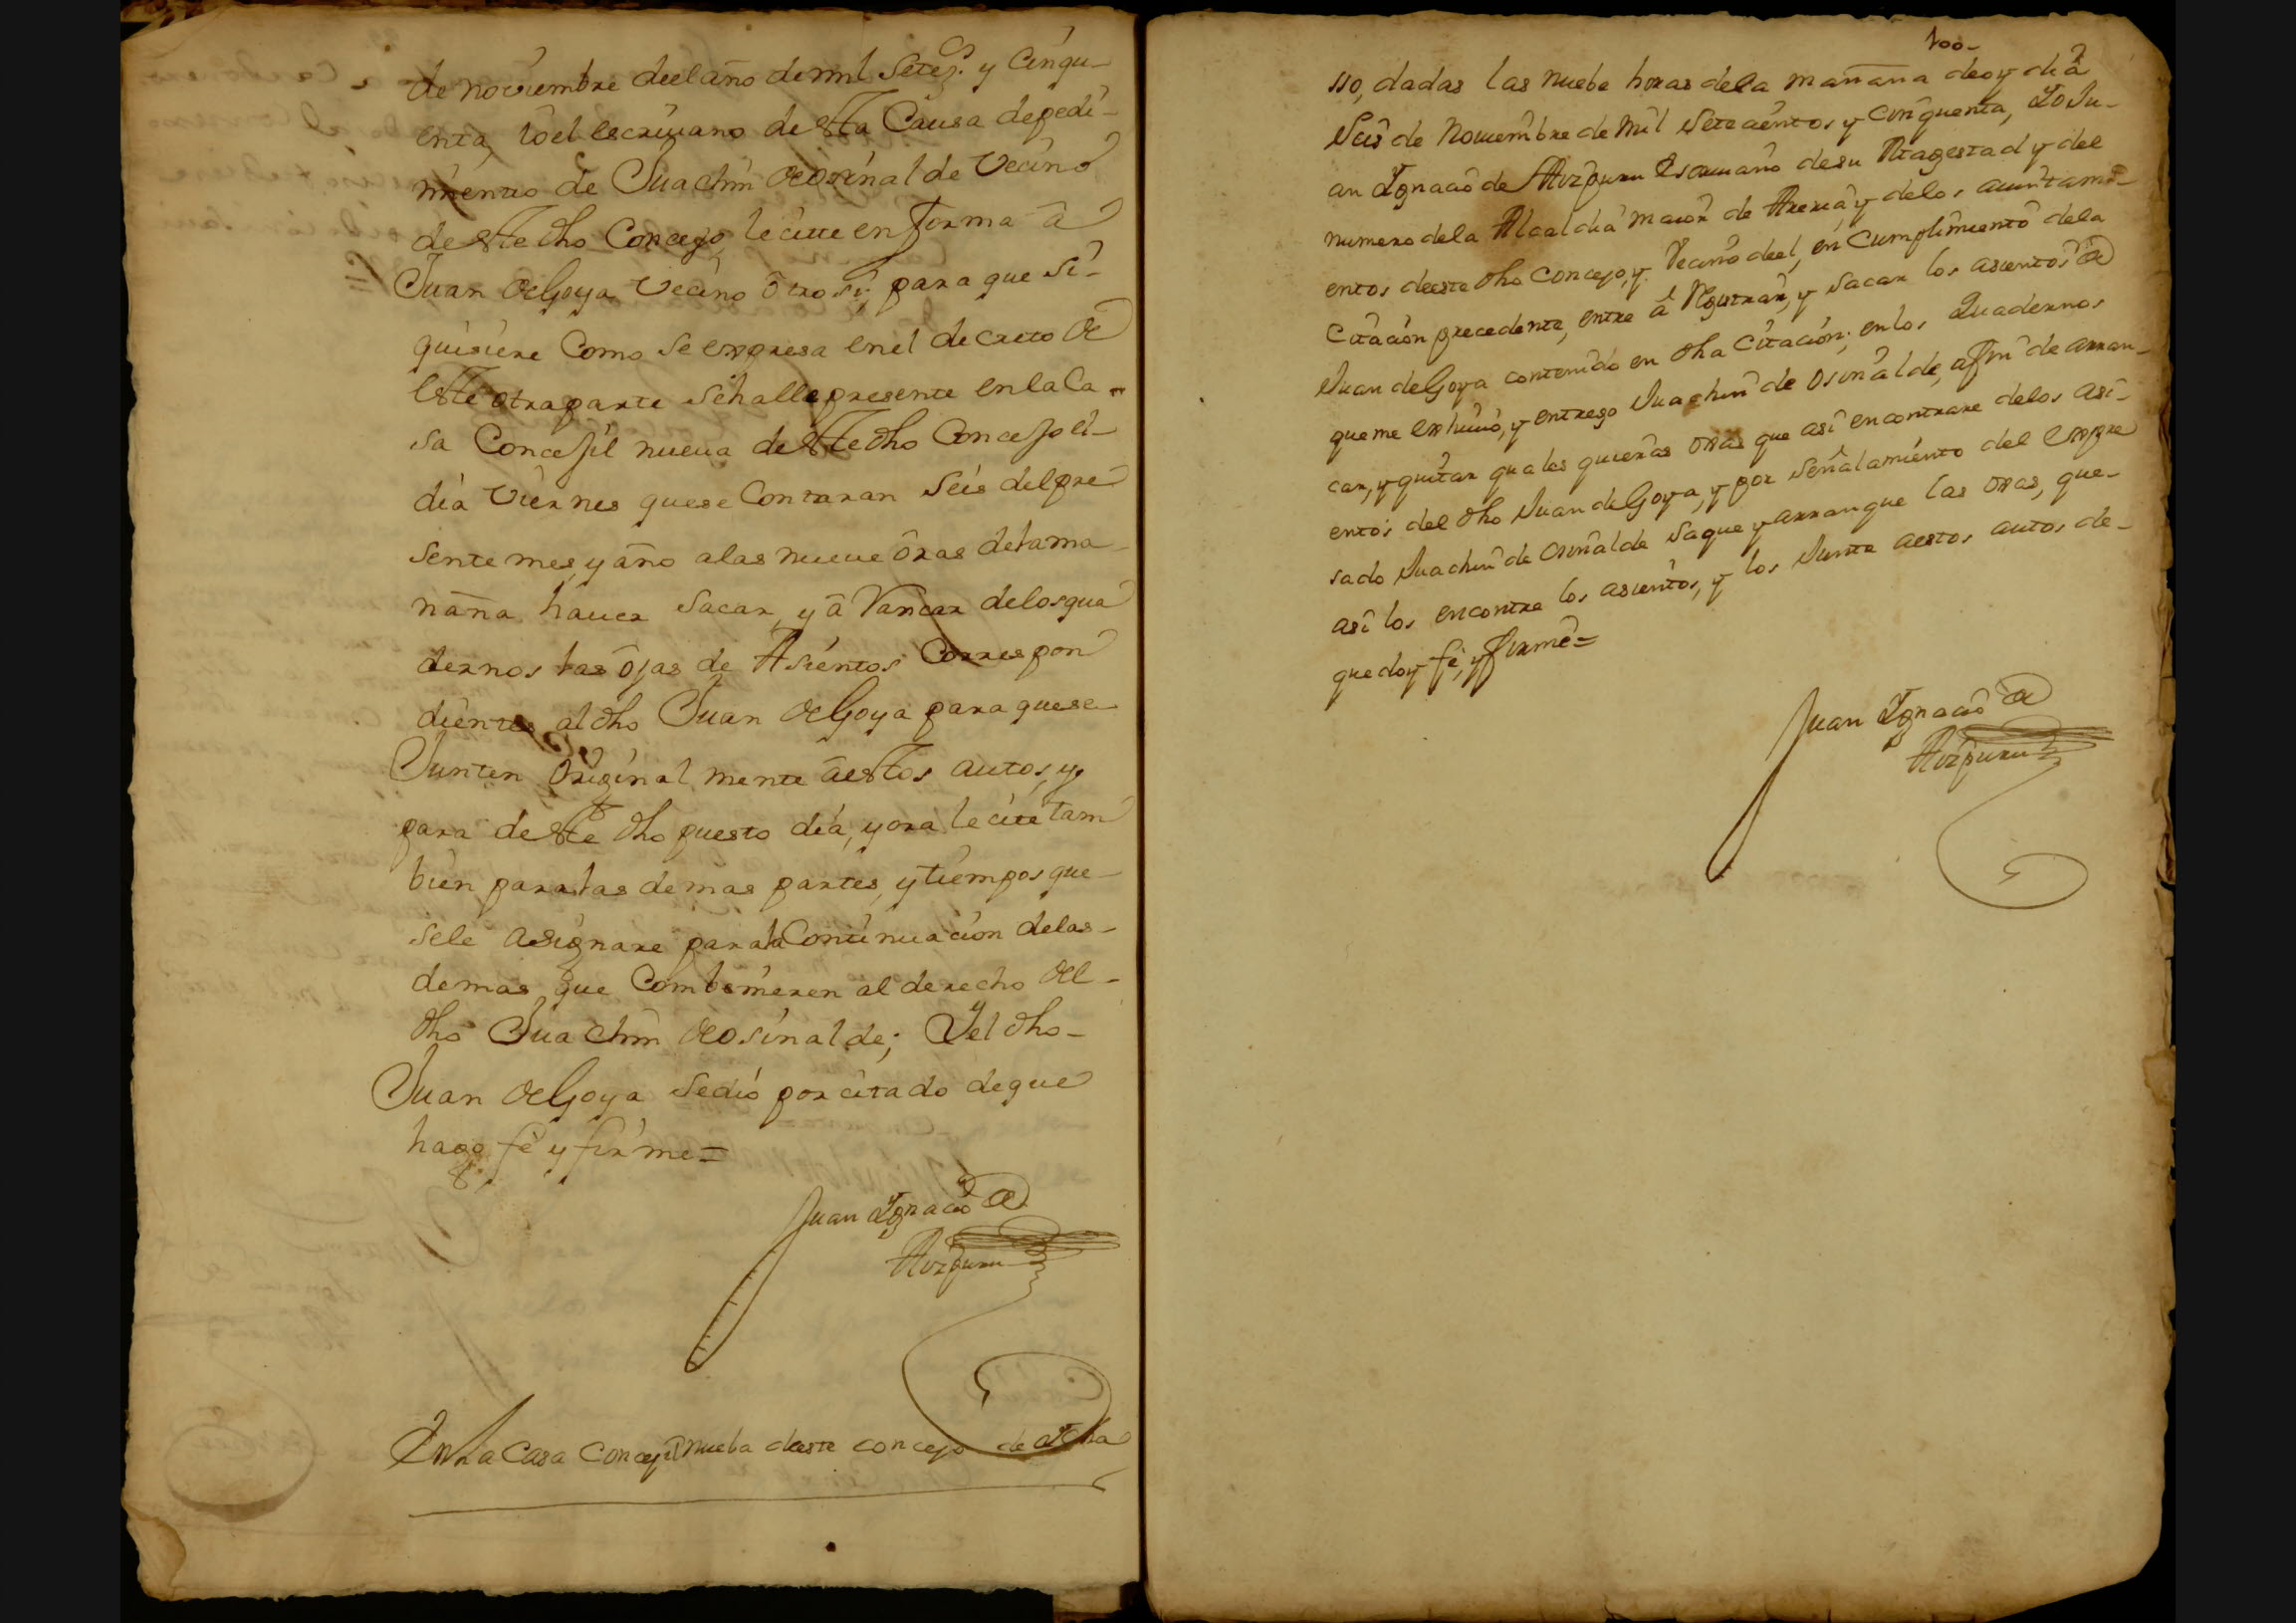 de noviembre deel año de mil Setez.s y Cinqu-
enta, Yo el escriuano de esta Causa de pedi-
mientto de Juachin de osinalde Vecino
de este dho Concejo, le cite en forma â
Juan de Goya Vecino ôtro si, para que si-
quisiere Como se expresa en el decreto de
este otra parte se halle presente en la Ca-
sa Concejil nueua de este dho Concejo el
dia Viernes que se Contaran Seis del pre
sente mes, y año a las nueue ôras de la ma-
nãna, hauer Sacar, y â Rancar de los qua
dernos las ôjas de Asientos Correspon
dientes al dho Juan de Goya para que se
Junten Original mente â estos autos, y
para de este dho puesto dia, y ora le cité tam
bien para las demas partes, y tiempos que-
se le asignare para la Continuacion de las-
demas que Combinieren al derecho del-
dho Juachin de osinalde; Y el dho-
Juan de Goya se dió por citado de que
hago fê y firmé =
Juan Ygnacio de
Aizpuru
En la Casa Concejil nueba de este concejo de
100-
no, dadas las nuebe horas de la mañana de oy dia
Seis de Nouiembre de Mil Setecientos y cinquenta, Yo Ju-
an Ygnacio de Aizpuru Escriuano de su Magestad y del
numero de la Alcaldia maior de Areria y de los aiuntami-
entos de este dho concejo, y Vecino de el, en Cumplimiento de la
Citacion precedente, entre â Registrar, y sacar los asientos de
Juan de Goya contenido en dha Citacion; en los Quadernos
que me exhiuio, y entrego Juachin de osinalde, a fin de arran-
car, y quitar quales quieras ojas que asi encontrare de los asi-
entos del dho Juan de Goya, y por señalamiento del expre
sado Juachin de osinalde saque y arranque las ojas, que-
asi los encontre los asientos, y los Junte a estos autos de-
que doy fê, y firmê =
Juan Ygnacio de
Aizpuru